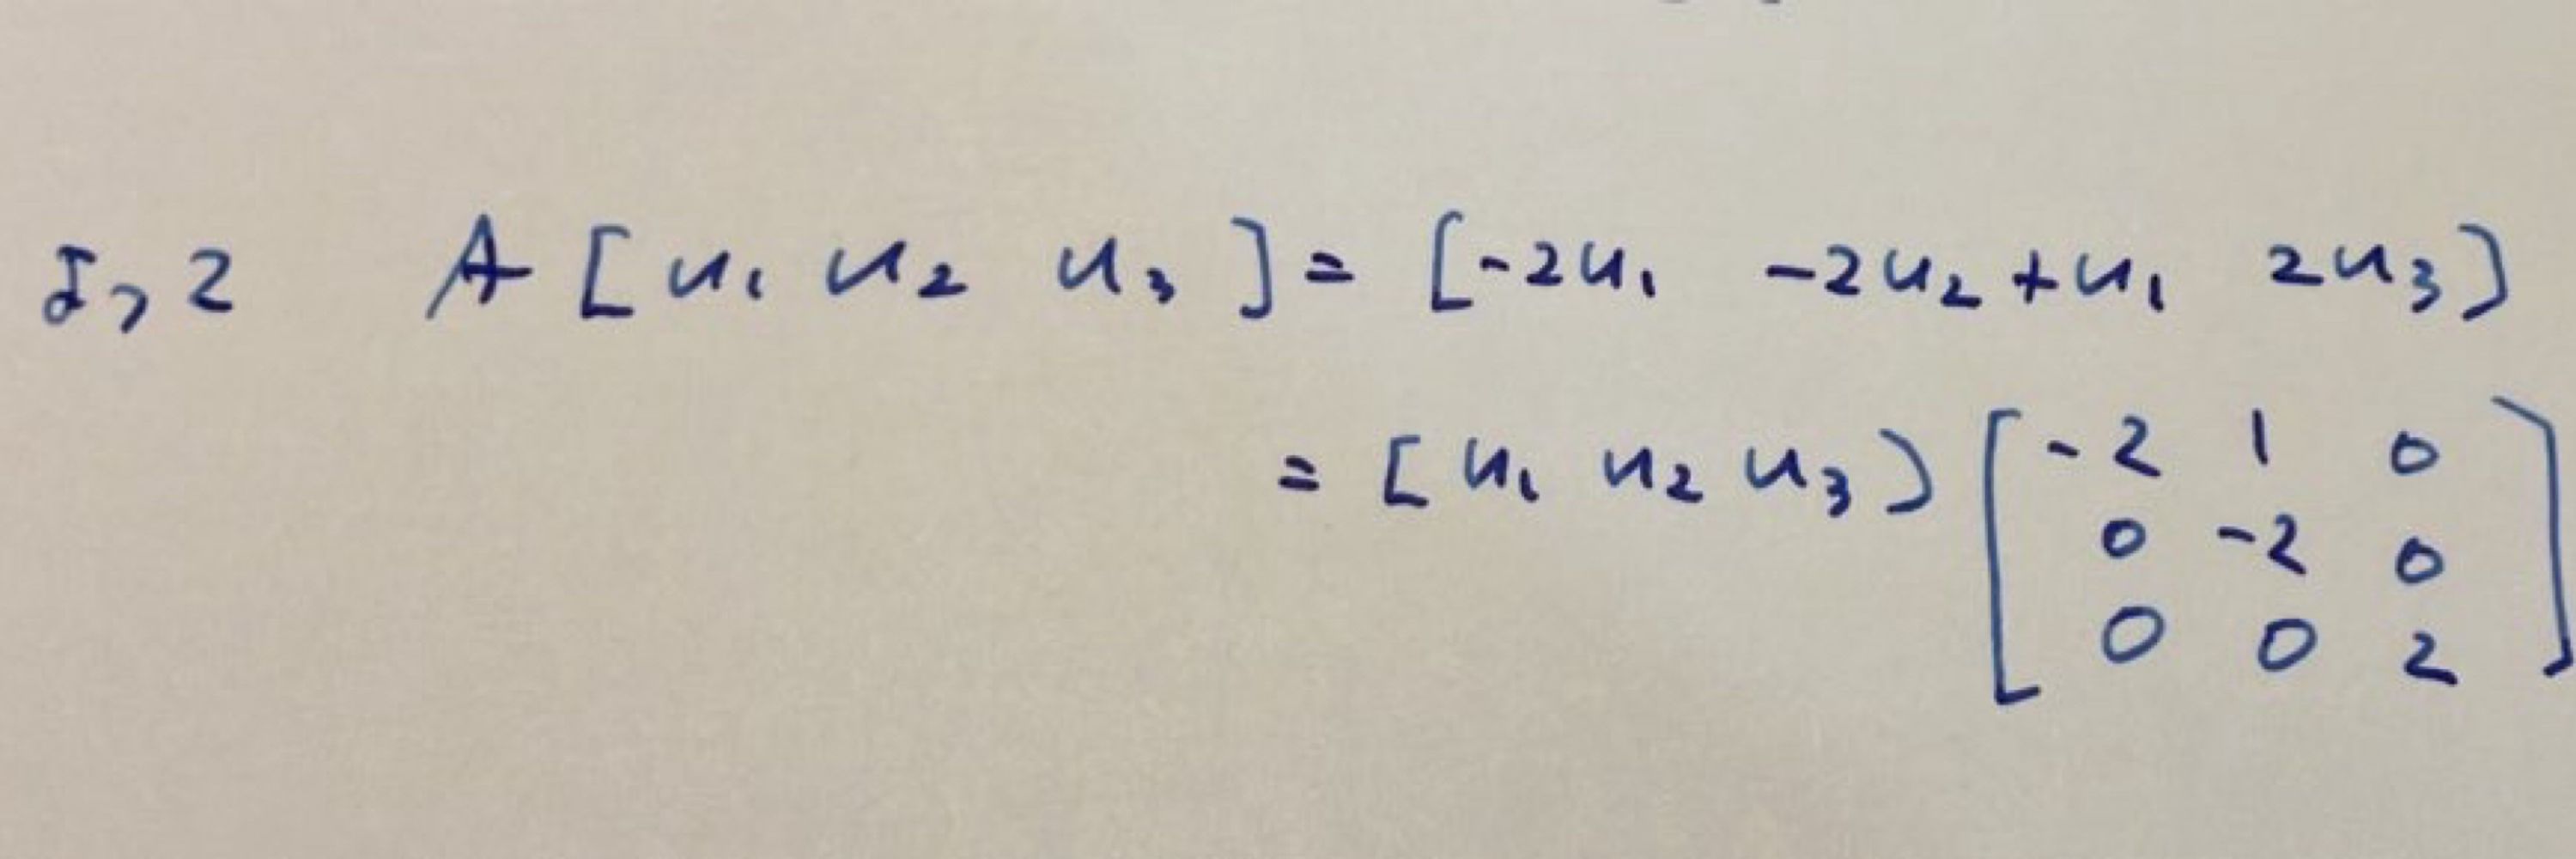 よって A [ u₁ u₂ u₃ ] = [ -2u₁ -2u₂ + u₁ 2u₃ ]
= [ u₁ u₂ u₃ ] [ -2 1 0
0 -2 0
0 0 2 ]